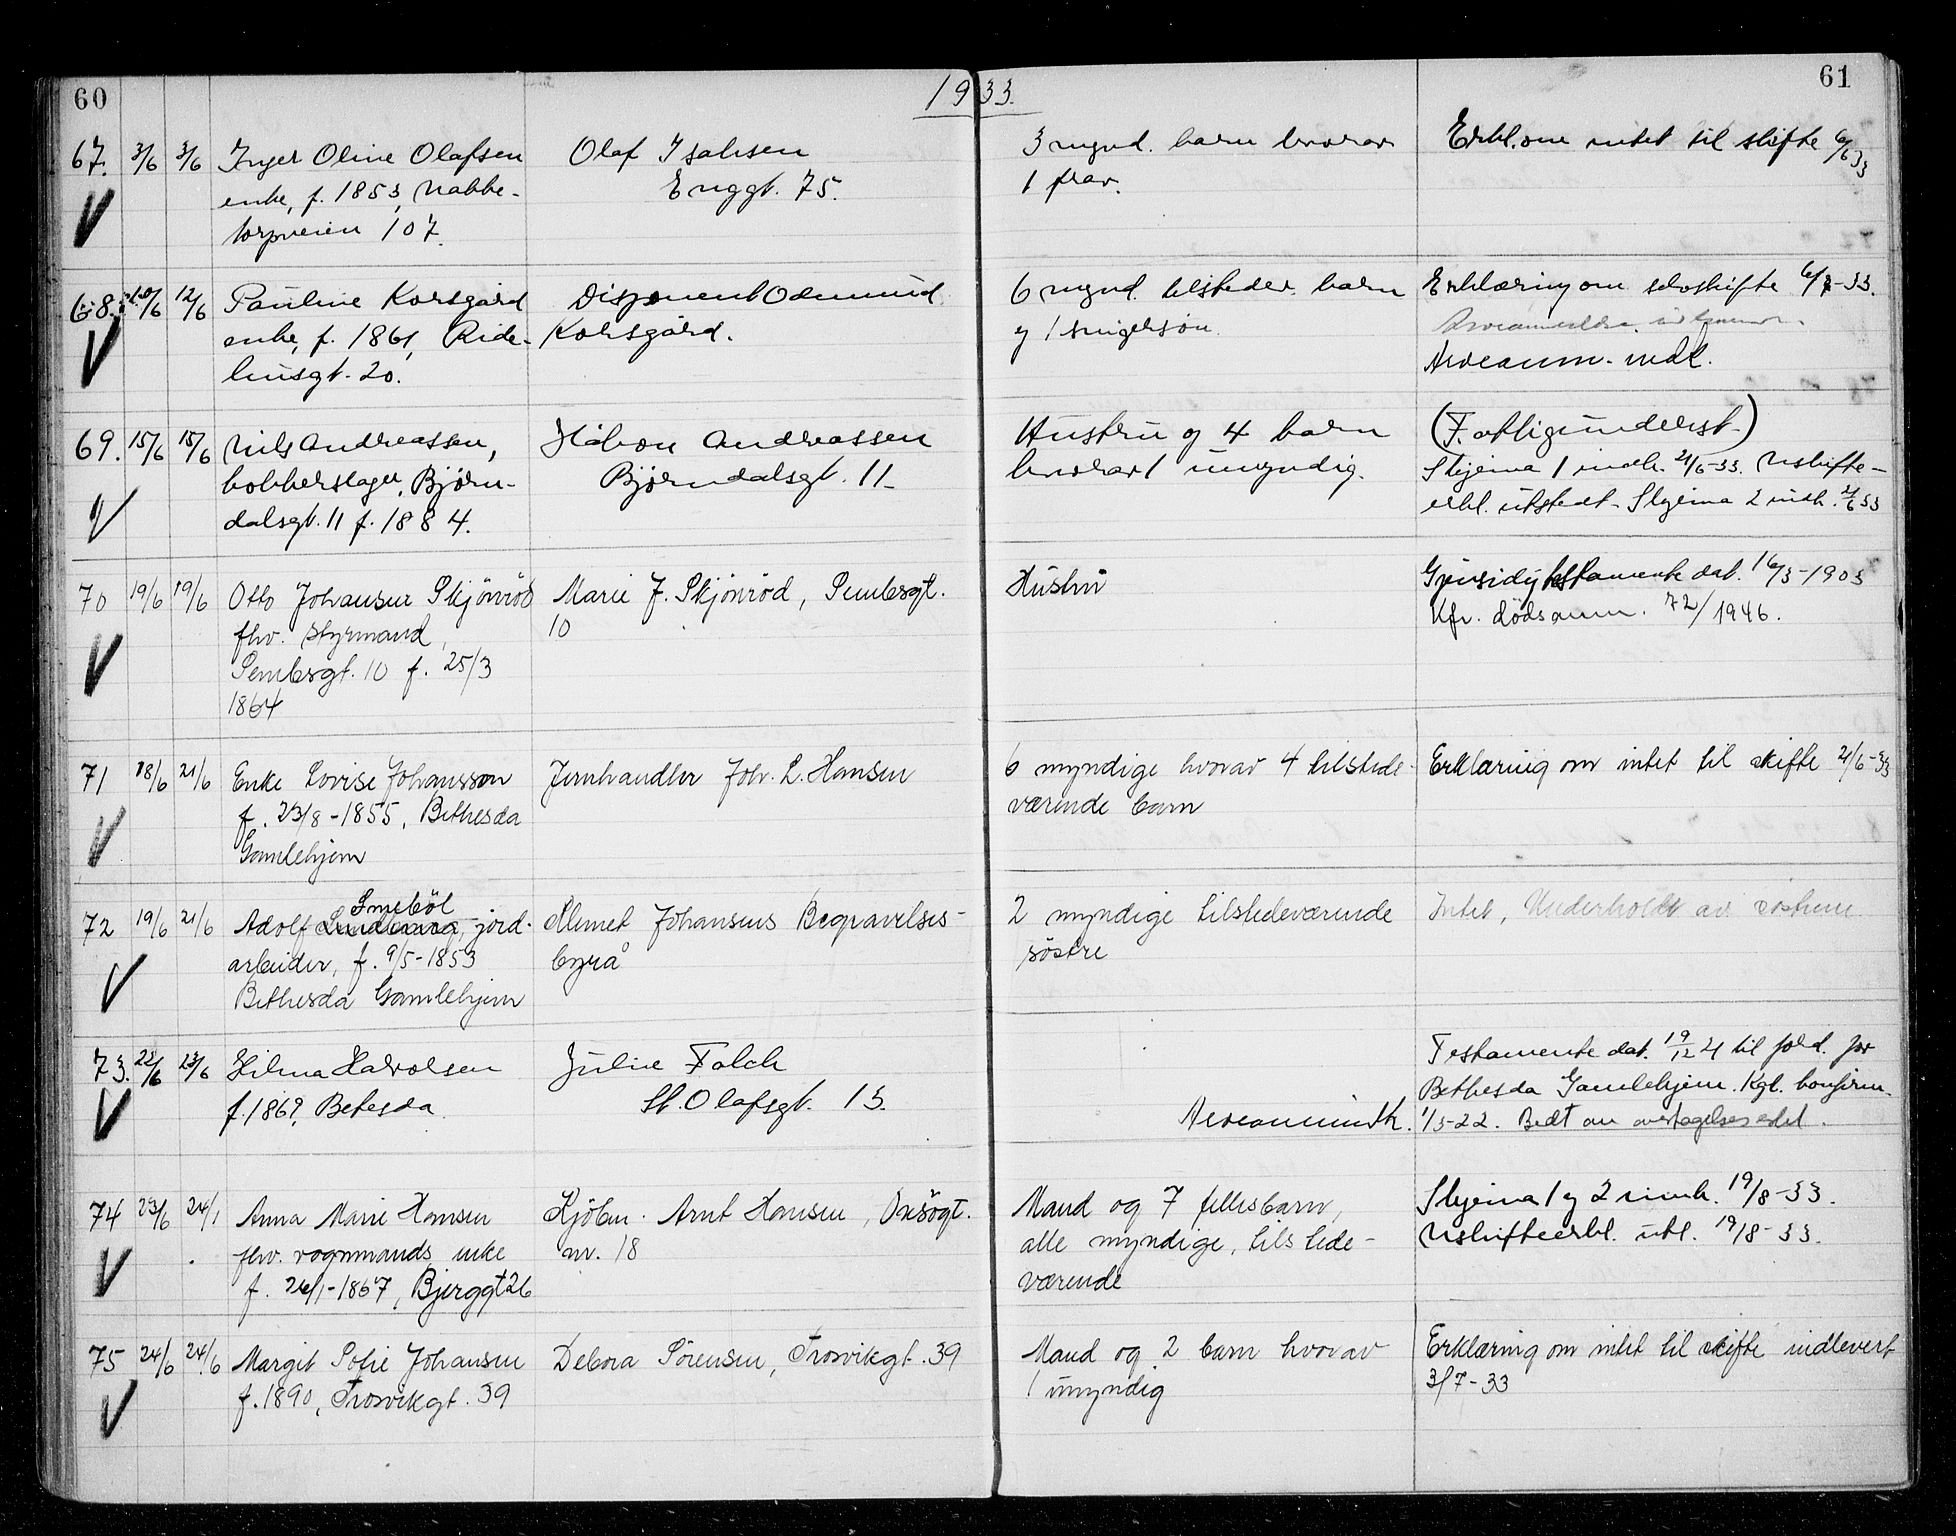 60
1933.
61
67. 3/6 3/6 Inger Oline Olafsen
enke, f. 1853, Nabbe-
torpveien 107.
Olaf Isaksen
Enggt. 75.
3 mynd. barn hvorav
1 frav.
Erkl. om intet til skifte 6/6 33
68. 10/6 12/6 Pauline Korsgård
enke, f. 1861, Ride-
husgt. 20.
Disponent Odmund
Korsgård.
6 mynd. tilsteder. barn
og 1 svigersøn.
Erklæring om selvskifte 6/7-33.
Arveanm. indl.
69. 15/6 15/6 Nils Andreassen,
kobberslager, Bjørn-
dalsgt. 11 f. 1884.
Håkon Andreassen
Bjørndalsgt. 11-
Hustru og 4 barn
hvorav 1 umyndig.
(Fattigunderst.)
Skjema 1 indk. 21/6-33. Uskifte-
erkl. utstedt. Skjema 2 indk. 21/6 33
70 19/6 19/6 Otto Johansen Skjönröd
fhv. styrmand,
Sembsgt. 10 f. 25/3
1864
Marie J. Skjönröd, Sembsgt.
10
Hustru
Gjensidig testamente dat. 16/3-1903
Kfr. dödsanm. 72/1946.
71 18/6 21/6 Enke Lovise Johansson
f. 23/8-1855, Bethesda
Gamlehjem
Jernhandler Joh. L. Hansen
6 myndige hvorav 4 tilstede-
værende barn
Erklæring om intet til skifte 21/6-33
Smeböl
72 19/6 21/6 Adolf jord-
arbeider, f. 9/5-1853
Bethesda Gamlehjem
Klemet Johansens Begravelses-
byrå
2 myndige tilstedeværende
söstre
Intet, Underholdt av söstrene
73. 22/6 23/6 Hilma Halvorsen
f. 1869, Betesda.
Julie Falch
St. Olafsgt. 13.
Testamente dat. 19/12 21 til ford. for
Bethesda Gamlehjem. Kgl. konfirm.
1/3-22. Bedt om overtagelsesedel.
74 23/6 24/1 Anna Marie Hansen
fhv. vognmands enke
f. 26/1-1867, Bjerggt 26
Kjöbm. Arnt Hansen, Onsögt.
nr. 18
Mand og 7 fellesbarn,
alle myndige, tilstede-
værende
Skjema 1 og 2 innk. 19/8-33.
Uskifteerkl. utl. 19/8-33.
75 24/6 24/6 Margit Sofie Johansen
f. 1890, Trosvikgt. 39
Debora Sörensen, Trosvikgt. 39
Mand og 2 barn hvorav
1 umyndig
Erklæring om intet til skifte indlevert
3/7-33